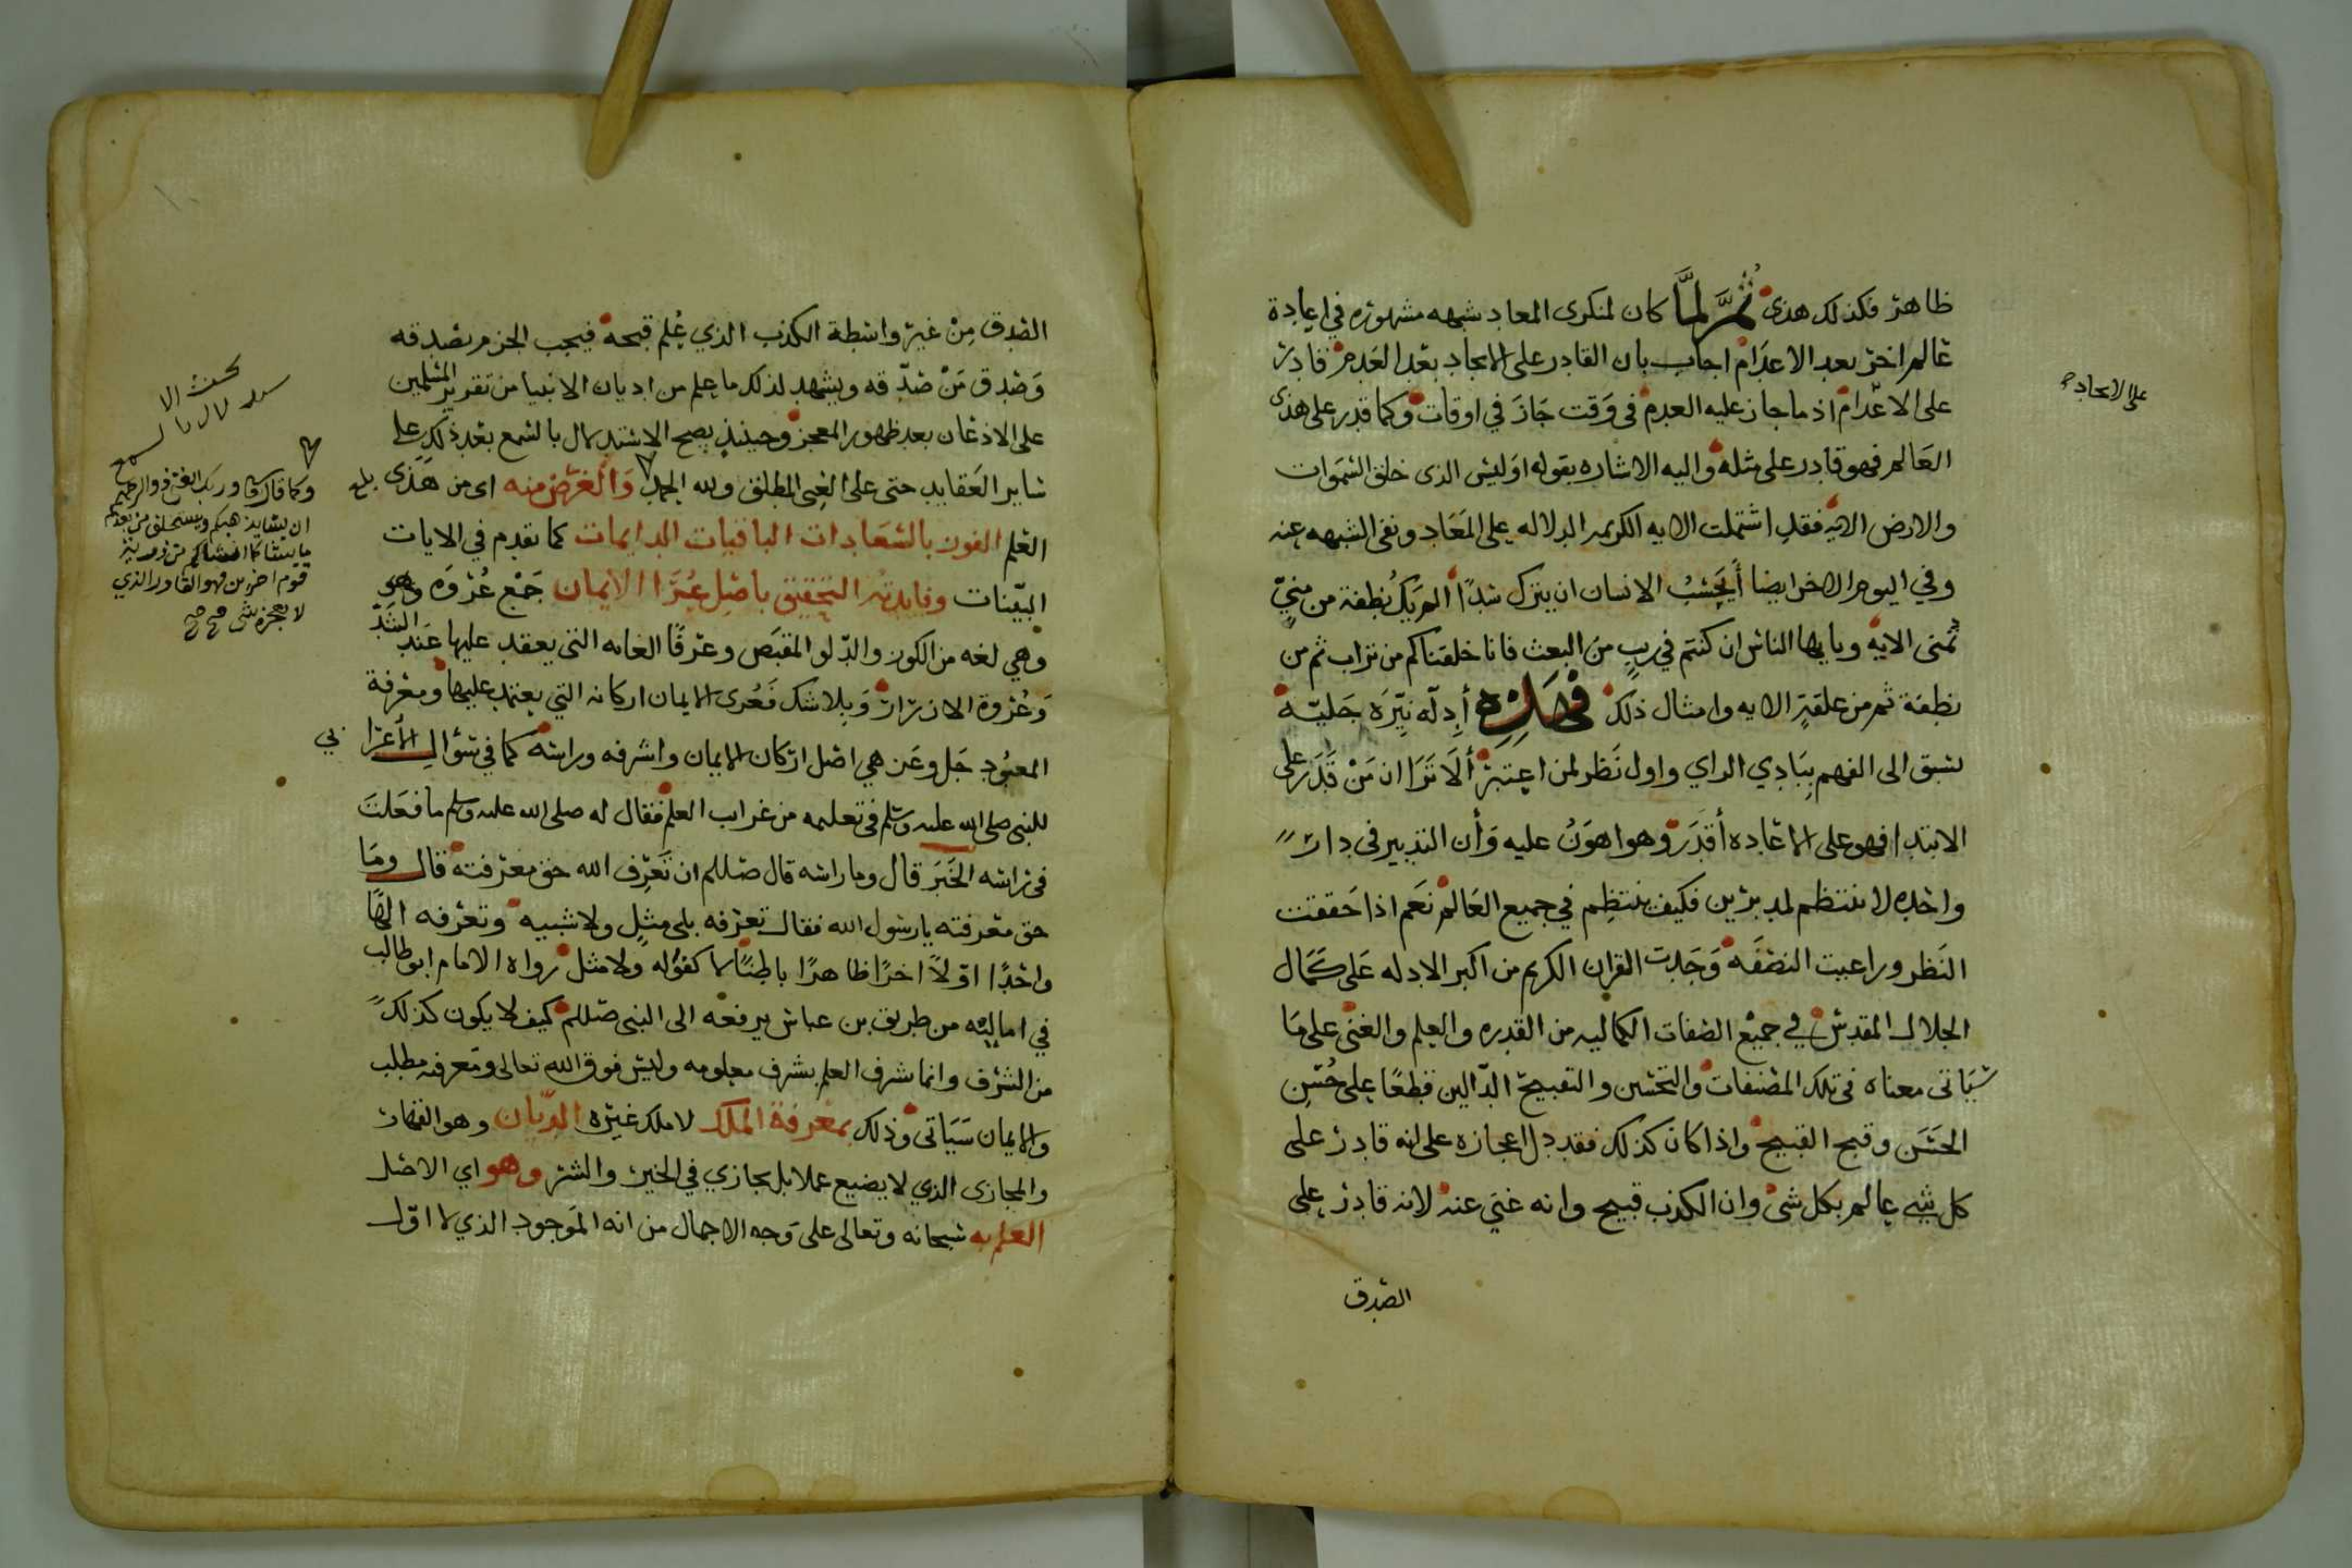 ظاهر فكذلك هذى ثُمَّ لمَّا كان لمنكرى المعاد شبهه مشهوره في اعادة
عالم اخر بعد الاعدام اجاب بان القادر على الايجاد بعد العدم قادر
على الاعدام اذ ما جاز عليه العدم فى وَقت جَازَ في اوقات وكما قدر على هذى
العَالم فهو قادر على مثله واليه الاشاره بقوله اوَليس الذى خلق السَّمَوات
والارض الايه فقد اشتملت الايه الكريمه الدلاله على المَعَاد ونفى الشبهه عنه
وفي اليوم الاخر ايضا أَيَحْسَبُ الانسان ان يترك سُدًا الم يَكُ نُطفة من منيٍّ
تُمنى الايه ويايها الناس ان كنتم في ريبٍ من البعث فانا خلقناكم من تراب ثم من
نطفة ثم من علقةٍ الايه وامثال ذلك فهَذِه أدِلَّه نيِّرَه جَليّه
تسبق الى الفهم بِبَادِي الراي واول نَظر لمن اعتبر ألاَ تَرَا ان مَنْ قَدَرَ على
الابتدا فهو على الاعاده أقدَر وهو اهوَنُ عليه وَأن التدبير فى دار
واحده لا ينتظم لمدبرَين فكيف ينتظِم في جميع العَالم نعَم اذا حَققت
النَظر وراعيت النصَفَه وَجَدت القران الكريم من اكبر الادله عَلى كمَال
الجلال المقدس في جميع الصفات الكماليه من القدره والعلم والغنى على مَا
سَيَاتى معناه فى تلك المصنفات والتحسين والتقبيح الدّالين قطعًا على حُسْنِ
الحَسَن وقبح القبيح واذا كانَ كذلك فقد دل اعجازه على انه قادر على
كل شي عالم بكل شى وان الكذب قبيح وانه غني عنه لانه قادر على
الصدق
على الايجاد
الصدق مِنْ غير واسطة الكذب الذي عُلم قبحه فيجب الجزم بصدقه
وَصدق مَنْ صَدّقه ويشهد لذلك ما علم من اديان الانبيا من تقرير المسلمين
على الاذعان بعد ظهور المعجز وحينئذٍ يصح الاستدلال بالسمع بعد ذلك على
ساير العَقايد حتى على الغنى المطلق ولله الحمد وَالغَرَض منه اى من هَذى
العلم الفوز بالسَّعَادات الباقيات الدايمات كما تقدم في الايات
البيّنات وفايدته التحقيق باصْلِ عُرَا الايمان جَمْع عُرْوَه وهى
وهي لغه من الكوز والدّلو المقبَض وعرفًا الغايه التى يعقد عليها عند الشَدّ
وَعُرْوة الازرَار وَبلا شك فَعُرى الايمان اركانه التي يعتمد عليها ومعرفة
المعبُود جَل وعَز هي اصْل ارْكان الايمان واشرفه وراسه كما في سؤال الأعْرَابي
للنبى صلى الله عليه وسلم فى تعليمه من غرايب العلم فقال له صلى الله عليه وسلم ما فعَلتَ
فى رَاسه الخَبَرَ قال وما راسه قال صللم ان تَعْرِف الله حق معرفته قال وَمَا
حق معرفته يا رسُول الله فقال تعرفه بلى مثلٍ ولا شبيه وتعرفه الهًا
واحدًا اوّلاً اخرًا ظاهرًا باطِنًا لا كفو له ولا مثل رواه الامام ابو طالب
في اماليه من طريق بن عباس يرفعه الى النبى صللم كيف لا يكون كذلك
من الشرف وانما شرف العلم بشرف معلومه وليس فوق الله تعالى ومَعرفته مطلب
والايمان سَيَاتى وذلك بمعْرفة الملك لا ملك غيره الديّان وهو القهار
والمجازى الذي لا يضيع عملا بل يجازي في الخير والشر وهو اي الاصْل
العلم به سبحانه وتعالى على وَجه الاجمال من انه الموَجود الذي لا اوّل
وربك الغنى ذو الرحمة
ان يشا يذهبكم ويستخلف من بعدكم
ما يشا كما انشاكم من ذرية
قوم اخرين فهو القادر الذي
لا يعجزه شى